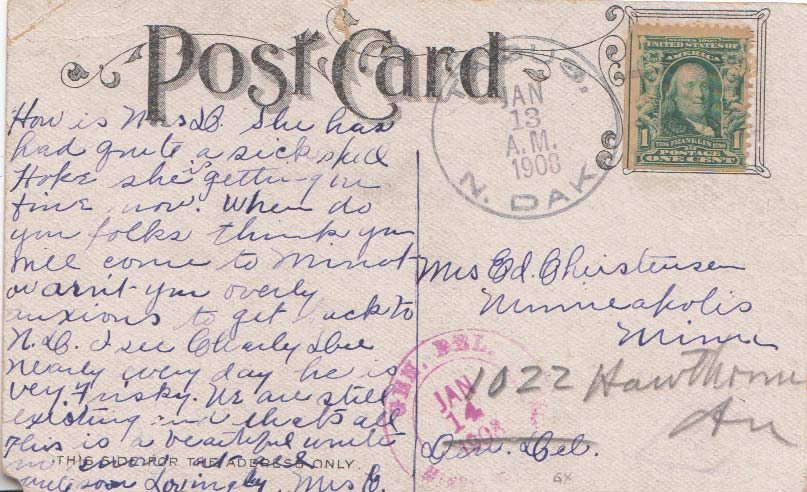 Post Card
How is Mrs D. She has
had quite a sick spell
Hope she getting on
fine now. When do
you folks think you
will come to Minot
or arn't you overly
anxious to get back to
N.D. I see Charly
nearly every day he is
very frisky. We are still
existing and thats all
This is a beautiful
THIS SIDE FOR THE ADDRESS ONLY.
soon Lovingly Mrs
JAN
13
A.M.
1908
N. DAK.
SERIES 1902
UNITED STATES OF
AMERICA
1
1706 FRANKLIN 1790
POSTAGE
ONE CENT
Mrs Ed. Christensen
Minneapolis
Minn
1022 Hawthorne
Av
GEN. DEL.
JAN
14
1908
Gen. Del.